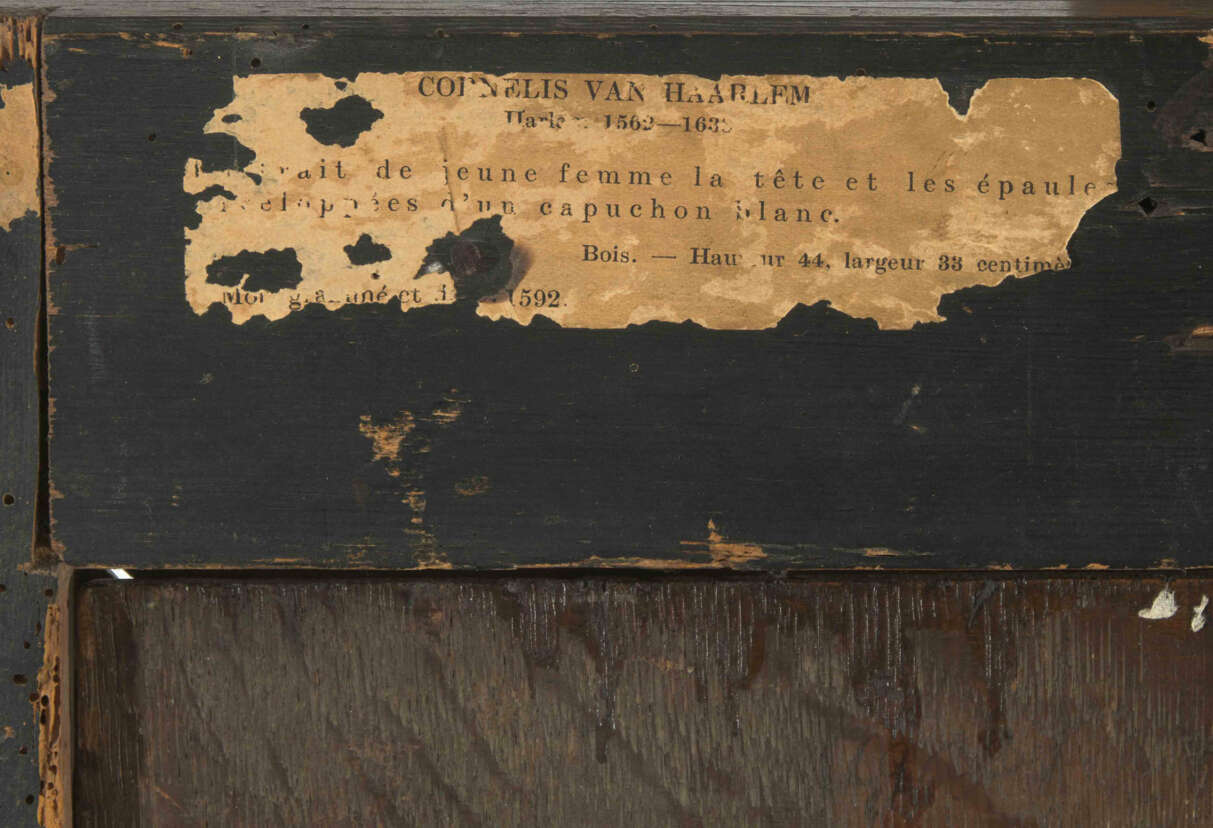 CORNELIS VAN HAARLEM
1562—163
de jeune femme la tête et les épaules
d'un capuchon blanc.
Bois. — Hauteur 44, largeur 33 centimè
et 1592.